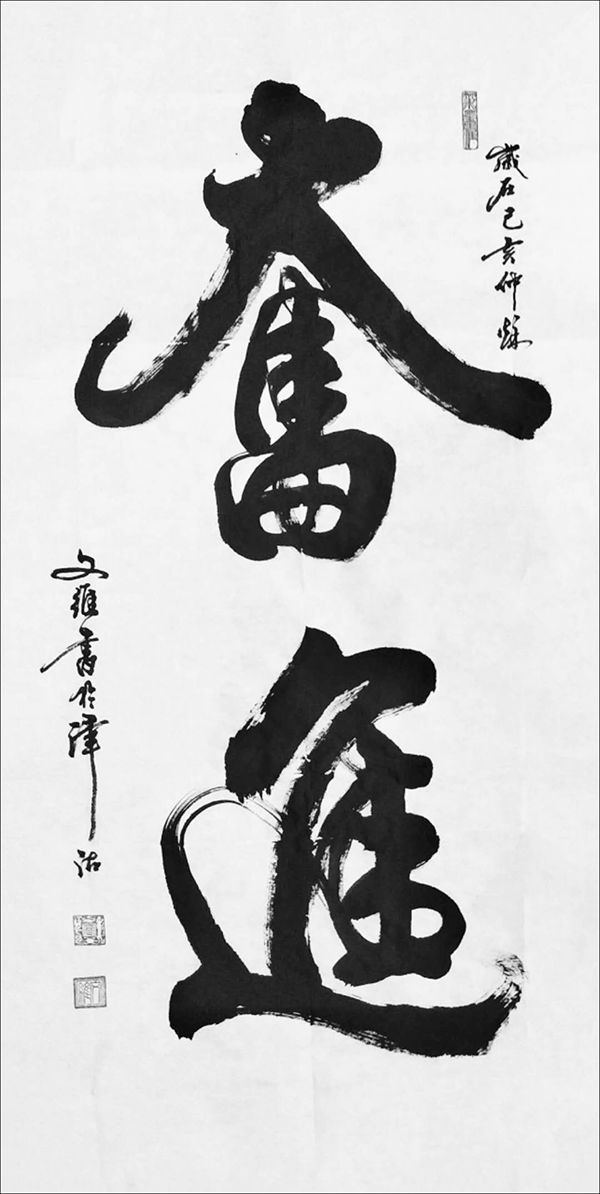 歲在己亥仲秋
奮進
文維書於津沽